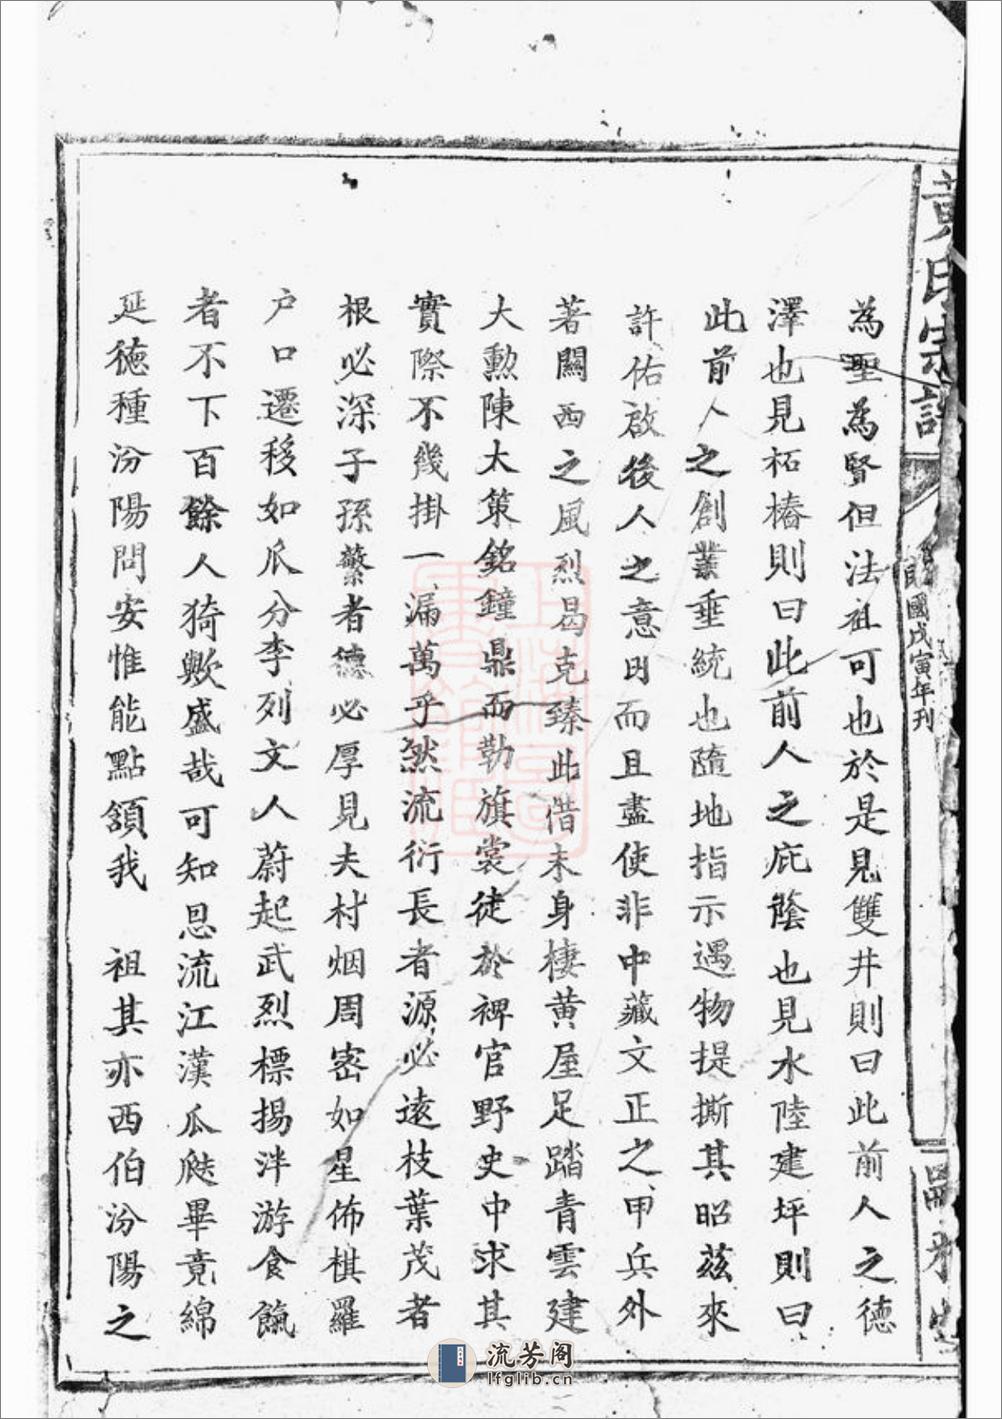 黃氏宗譜
民國戊寅年刊
為聖為賢但法祖可也於是見雙井則曰此前人之德
澤也見柘椿則曰此前人之庇蔭也見水陸建坪則曰
此前人之創業垂統也隨地指示遇物提撕其昭茲來
許佑啟後人之意日而且盡使非中藏文正之甲兵外
著關西之風烈曷克臻此借未身棲黃屋足踏青雲建
大勲陳太策銘鐘鼎而勒旗裳徒於裨官野史中求其
實際不幾掛一漏萬乎然流衍長者源必遠枝葉茂者
根必深子孫繁者德必厚見夫村烟周密如星佈棋羅
户口遷移如瓜分李列文人蔚起武烈標揚泮游食餼
者不下百餘人猗歟盛哉可知恩流江漢瓜瓞畢竟綿
延德種汾陽問安惟能點頷我 祖其亦西伯汾陽之
流芳阁
lfglib.cn